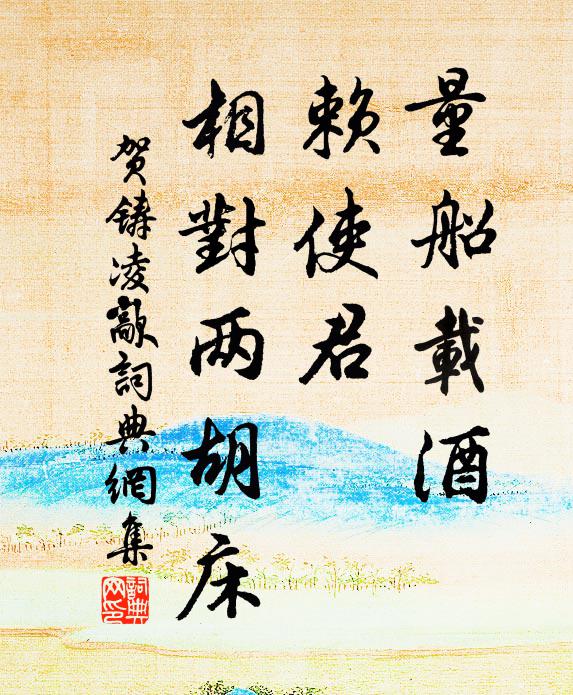 量船載酒
賴使君
相對兩胡床
贺鑄凌歊詞典網集
詞典網印